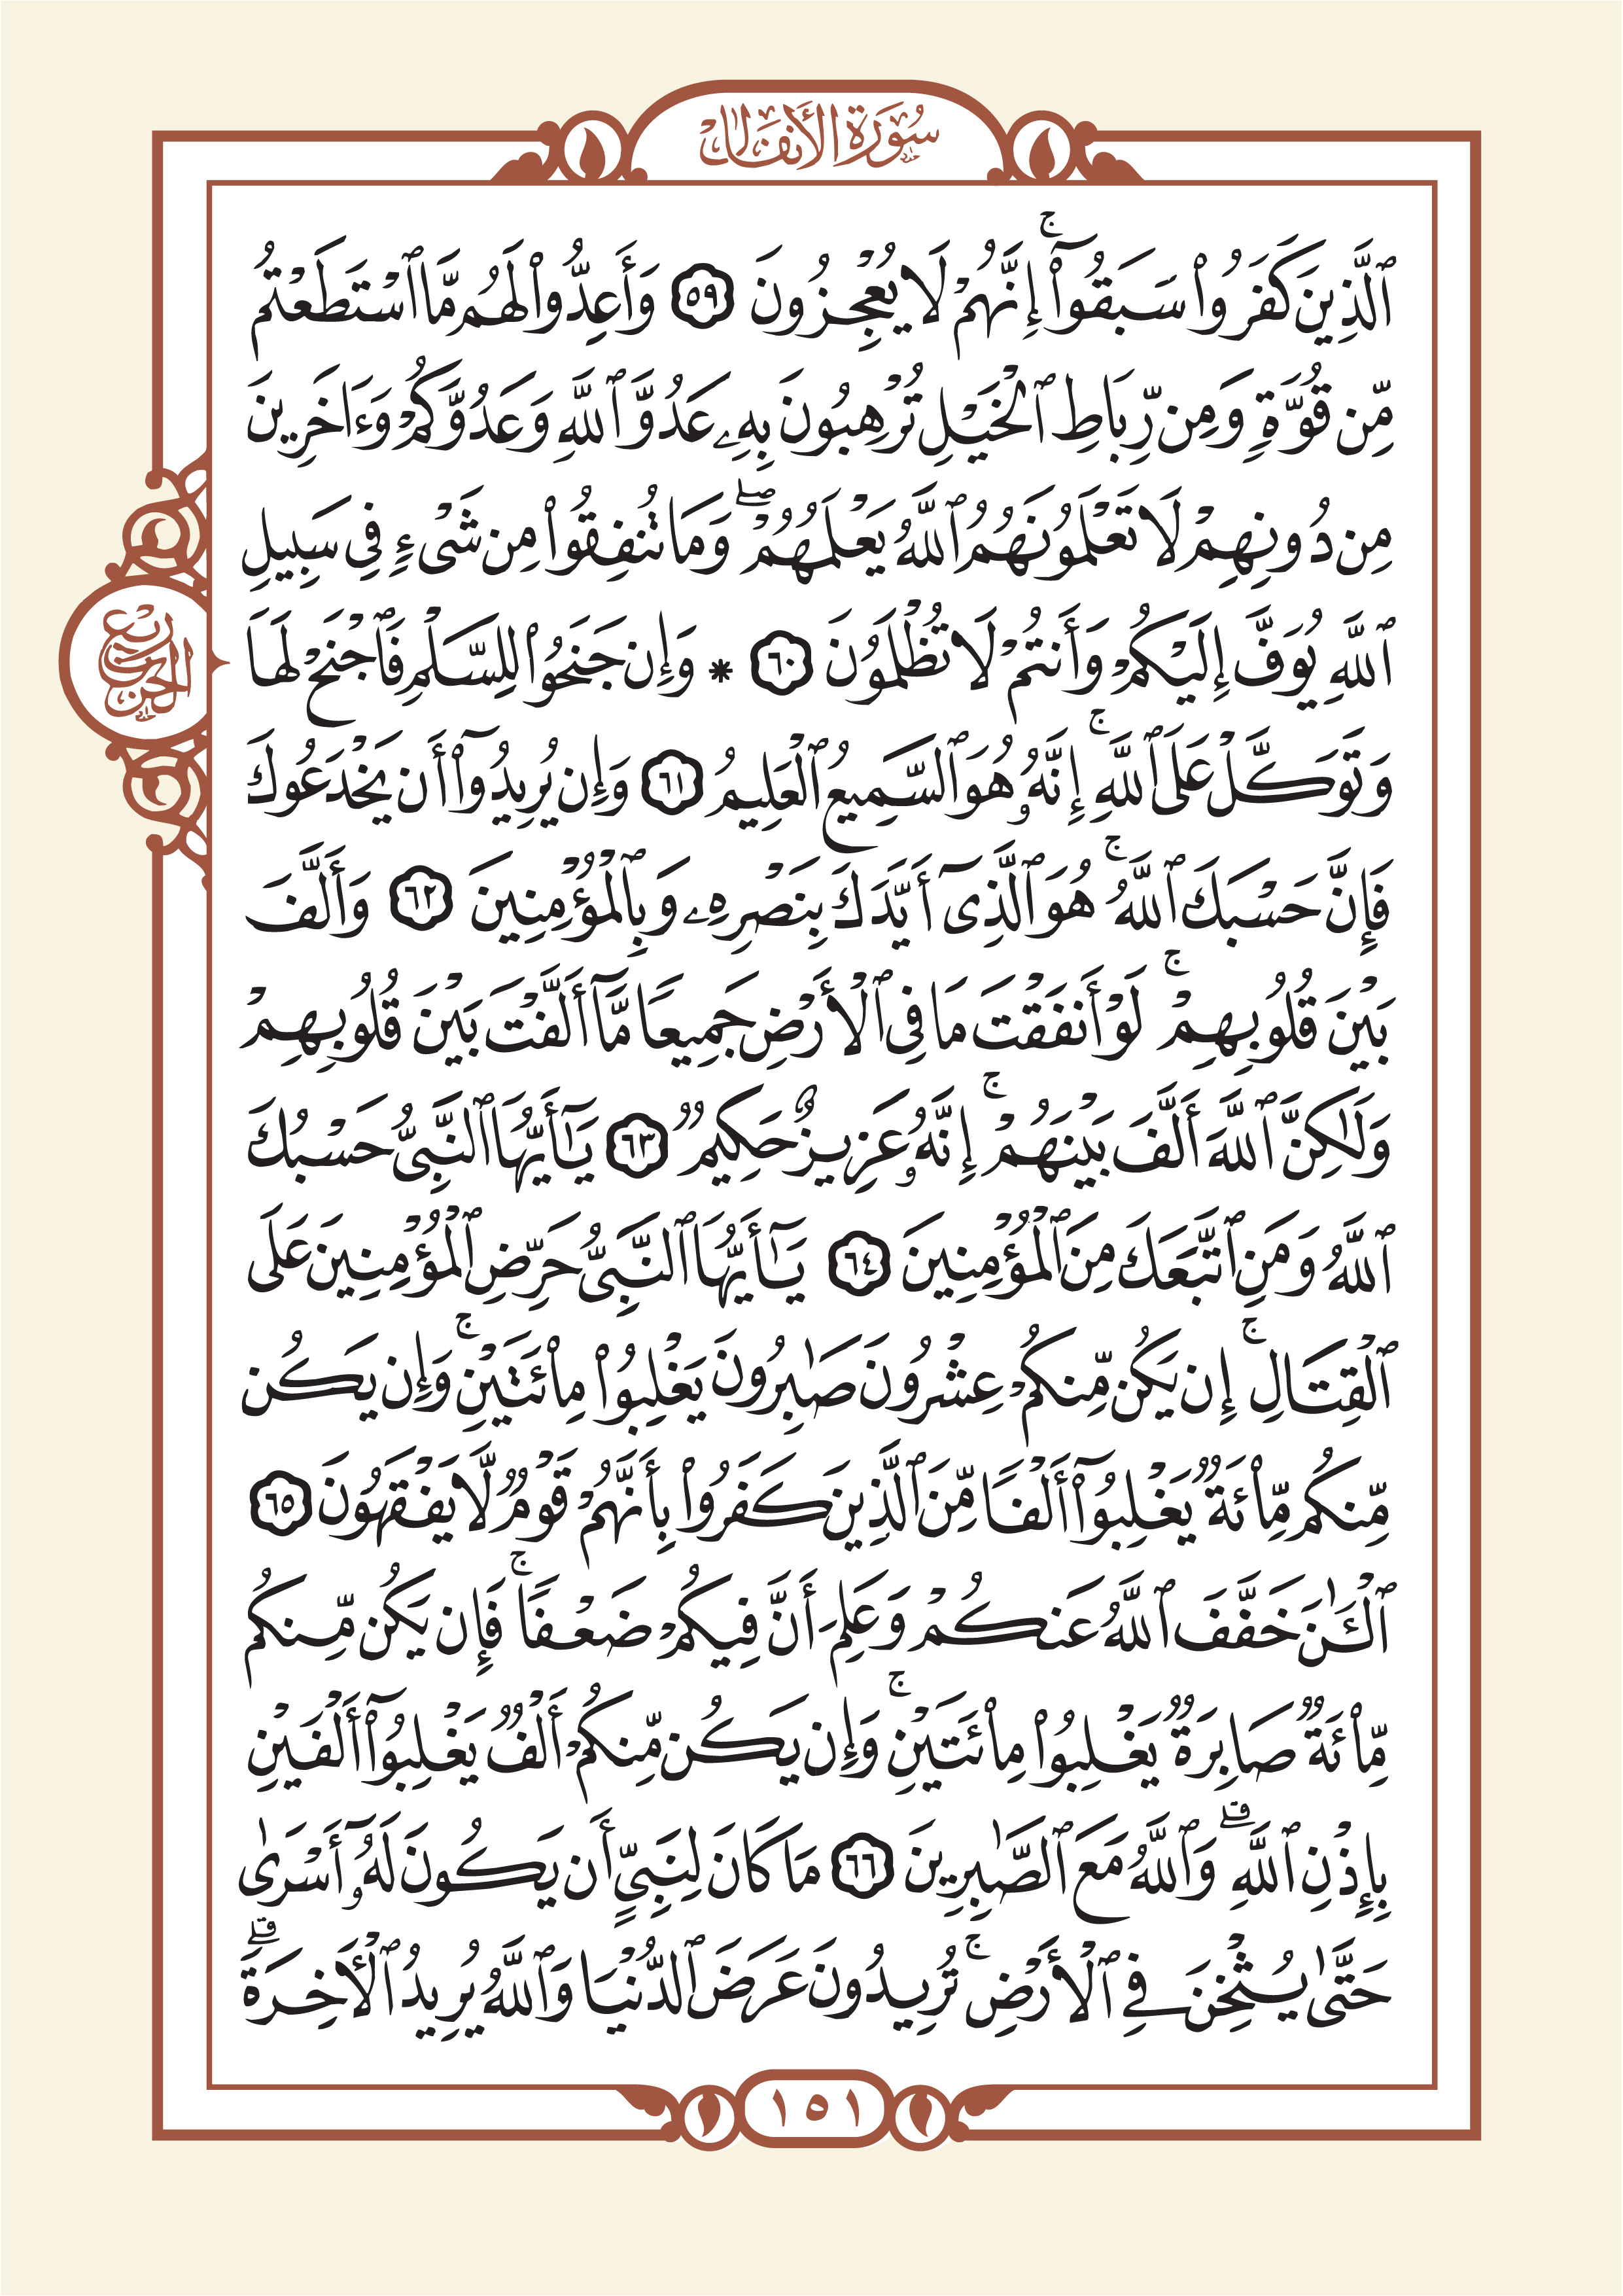 سُورَةُ الأَنفَالِ
ٱلَّذِينَ كَفَرُوا۟ سَبَقُوٓا۟ ۚ إِنَّهُمْ لَا يُعْجِزُونَ ٥٩ وَأَعِدُّوا۟ لَهُم مَّا ٱسْتَطَعْتُم
مِّن قُوَّةٍ وَمِن رِّبَاطِ ٱلْخَيْلِ تُرْهِبُونَ بِهِۦ عَدُوَّ ٱللَّهِ وَعَدُوَّكُمْ وَءَاخَرِينَ
مِن دُونِهِمْ لَا تَعْلَمُونَهُمُ ٱللَّهُ يَعْلَمُهُمْ ۖ وَمَا تُنفِقُوا۟ مِن شَىْءٍ فِى سَبِيلِ
ٱللَّهِ يُوَفَّ إِلَيْكُمْ وَأَنتُمْ لَا تُظْلَمُونَ ٦٠ * وَإِن جَنَحُوا۟ لِلسَّلْمِ فَٱجْنَحْ لَهَا
ربع الحزب
وَتَوَكَّلْ عَلَى ٱللَّهِ ۚ إِنَّهُۥ هُوَ ٱلسَّمِيعُ ٱلْعَلِيمُ ٦١ وَإِن يُرِيدُوٓا۟ أَن يَخْدَعُوكَ
فَإِنَّ حَسْبَكَ ٱللَّهُ ۚ هُوَ ٱلَّذِىٓ أَيَّدَكَ بِنَصْرِهِۦ وَبِٱلْمُؤْمِنِينَ ٦٢ وَأَلَّفَ
بَيْنَ قُلُوبِهِمْ ۚ لَوْ أَنفَقْتَ مَا فِى ٱلْأَرْضِ جَمِيعًا مَّآ أَلَّفْتَ بَيْنَ قُلُوبِهِمْ
وَلَٰكِنَّ ٱللَّهَ أَلَّفَ بَيْنَهُمْ ۚ إِنَّهُۥ عَزِيزٌ حَكِيمٌ ٦٣ يَٰٓأَيُّهَا ٱلنَّبِىُّ حَسْبُكَ
ٱللَّهُ وَمَنِ ٱتَّبَعَكَ مِنَ ٱلْمُؤْمِنِينَ ٦٤ يَٰٓأَيُّهَا ٱلنَّبِىُّ حَرِّضِ ٱلْمُؤْمِنِينَ عَلَى
ٱلْقِتَالِ ۚ إِن يَكُن مِّنكُمْ عِشْرُونَ صَٰبِرُونَ يَغْلِبُوا۟ مِا۟ئَتَيْنِ ۚ وَإِن يَكُن
مِّنكُم مِّا۟ئَةٌ يَغْلِبُوٓا۟ أَلْفًا مِّنَ ٱلَّذِينَ كَفَرُوا۟ بِأَنَّهُمْ قَوْمٌ لَّا يَفْقَهُونَ ٦٥
ٱلْـَٰٔنَ خَفَّفَ ٱللَّهُ عَنكُمْ وَعَلِمَ أَنَّ فِيكُمْ ضَعْفًا ۚ فَإِن يَكُن مِّنكُم
مِّا۟ئَةٌ صَابِرَةٌ يَغْلِبُوا۟ مِا۟ئَتَيْنِ ۚ وَإِن يَكُن مِّنكُمْ أَلْفٌ يَغْلِبُوٓا۟ أَلْفَيْنِ
بِإِذْنِ ٱللَّهِ ۗ وَٱللَّهُ مَعَ ٱلصَّٰبِرِينَ ٦٦ مَا كَانَ لِنَبِىٍّ أَن يَكُونَ لَهُۥٓ أَسْرَىٰ
حَتَّىٰ يُثْخِنَ فِى ٱلْأَرْضِ ۚ تُرِيدُونَ عَرَضَ ٱلدُّنْيَا وَٱللَّهُ يُرِيدُ ٱلْءَاخِرَةَ ۗ
١٥١